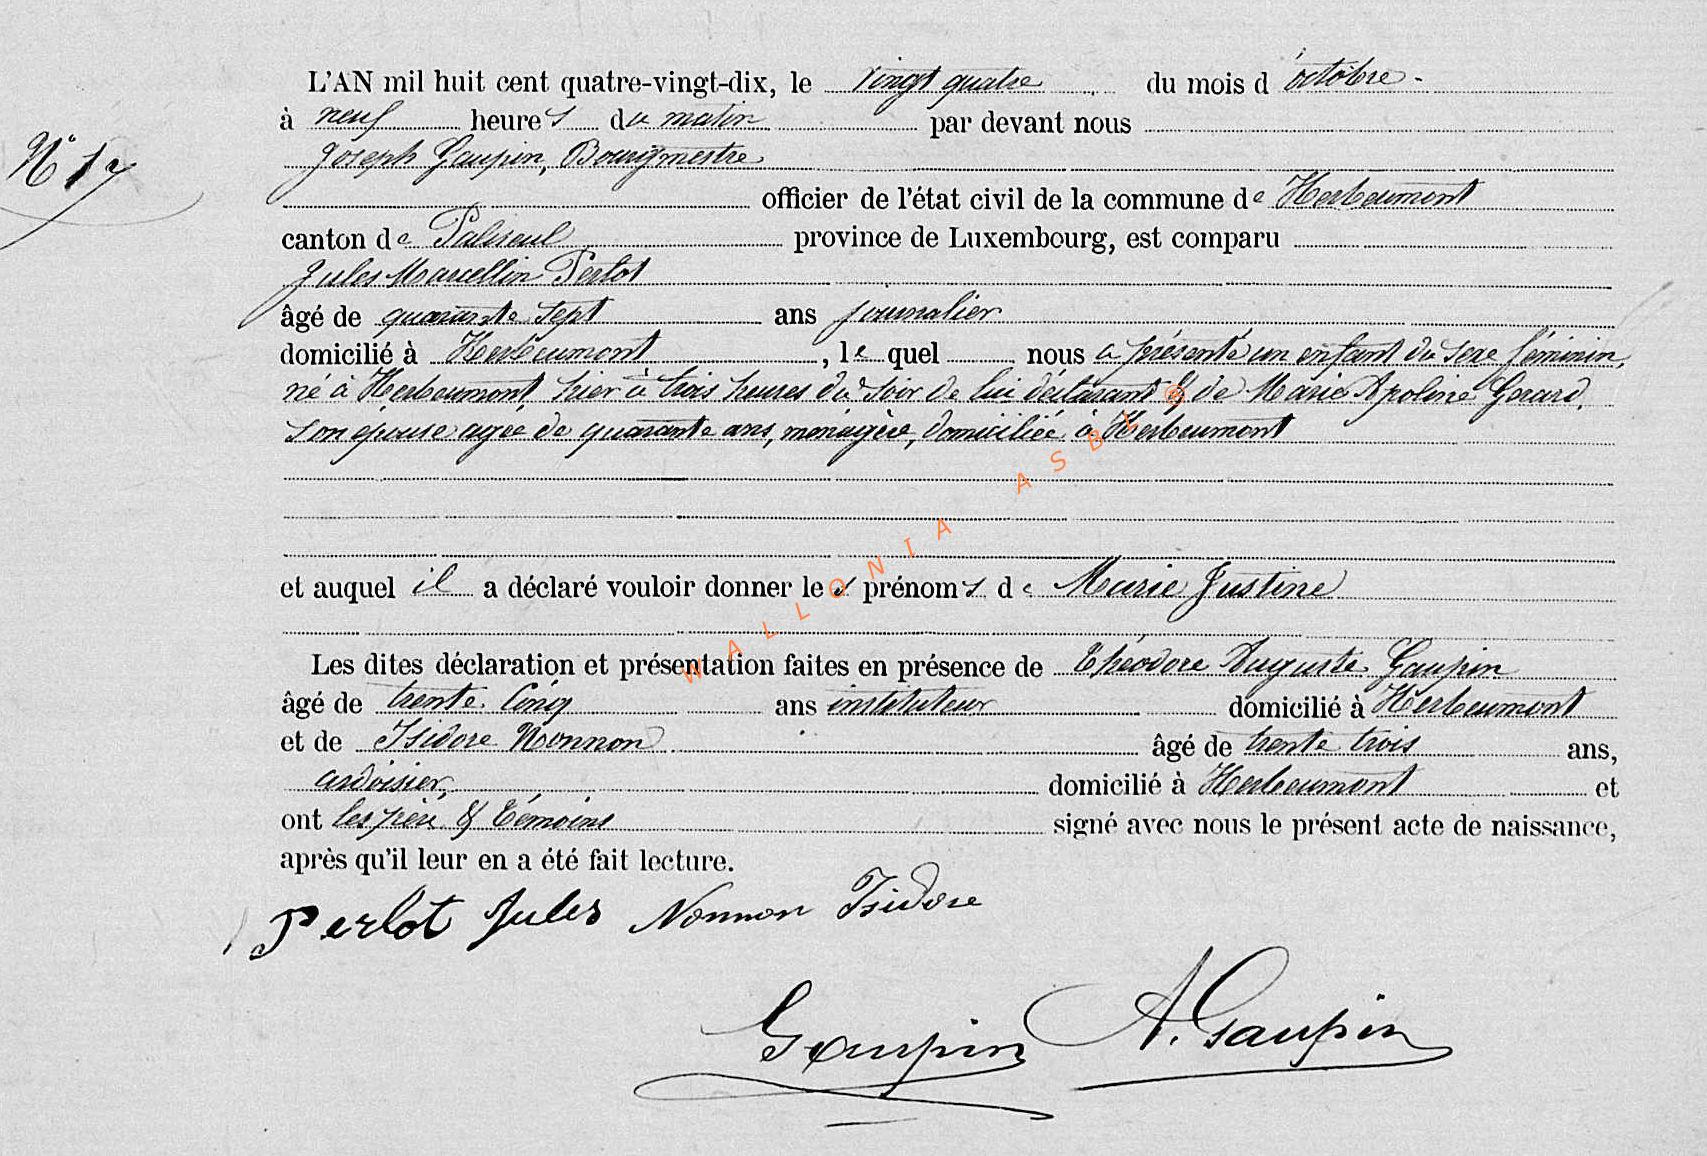 L'AN mil huit cent quatre-vingt-dix, le vingt quatre du mois d'octobre.
N° 17
à neuf heures du matin par devant nous
Joseph Gaupin, Bourgmestre
officier de l'état civil de la commune de Herbeumont
canton de Paliseul province de Luxembourg, est comparu
Jules Marcellin Perlot
âgé de quarante sept ans journalier
domicilié à Herbeumont, le quel nous a présenté un enfant du sexe féminin,
né à Herbeumont, hier à trois heures du soir de lui déclarant & de Marie Apoline Gerard,
son épouse agée de quarante ans, ménagère, domiciliée à Herbeumont
et auquel il a déclaré vouloir donner les prénoms de Marie Justine
Les dites déclaration et présentation faites en présence de Théodore Auguste Gaupin
âgé de trente cinq ans instituteur domicilié à Herbeumont
et de Isidore Nonnon âgé de trente trois ans,
ardoisier, domicilié à Herbeumont et
ont les père & témoins signé avec nous le présent acte de naissance,
après qu'il leur en a été fait lecture.
Perlot Jules Nonnon Isidore
Gaupin A. Gaupin
WALLONIA ASBL ®